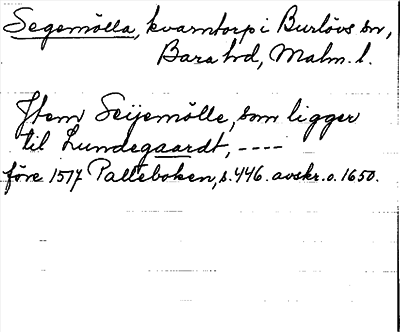 Segemölla, kvarntorp i Burlövs sn,
Bara hd, Malm. l.
Item Seijemölle, som ligger
til Lundegaardt, ----
före 1517 Palteboken, s. 446. avskr. o. 1650.